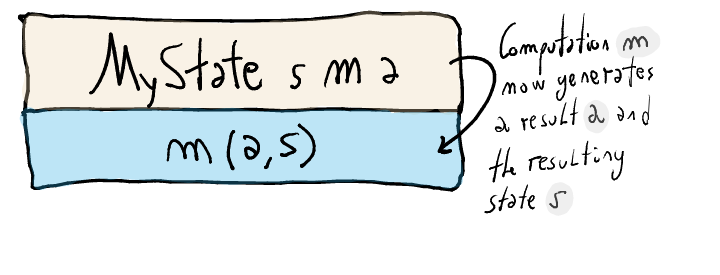 MyState s m a
m (a,s)
Computation m
now generates
a result a and
the resulting
state s